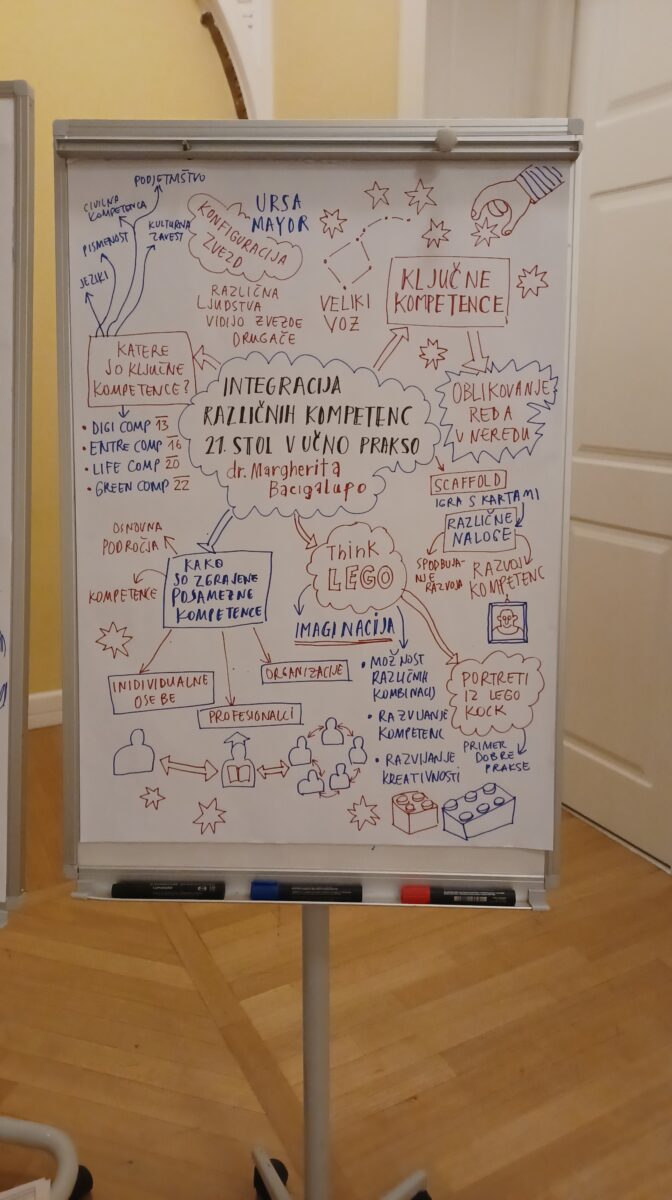 PODJETNIŠTVO
CIVILNA
KOMPETENCA
KULTURNA
ZAVEST
PISMENOST
JEZIKI
URSA
MAYOR
KONFIGURACIJA
ZVEZD
RAZLIČNA
LJUDSTVA
VIDIJO ZVEZDE
DRUGAČE
VELIKI
VOZ
KLJUČNE
KOMPETENCE
KATERE
SO KLJUČNE
KOMPETENCE?
• DIGI COMP 13
• ENTRE COMP 16
• LIFE COMP 20
• GREEN COMP 22
INTEGRACIJA
RAZLIČNIH KOMPETENC
21. STOL V UČNO PRAKSO
dr. Margherita
Bacigalupo
OBLIKOVANJE
REDA
V NEREDU
SCAFFOLD
IGRA S KARTAMI
RAZLIČNE
NALOGE
SPODBUJA-
NJE
RAZVOJA
RAZVOJ
KOMPETENC
OSNOVNA
PODROČJA
KOMPETENCE
KAKO
SO ZGRAJENE
POSAMEZNE
KOMPETENCE
INIDIVIDUALNE
OSEBE
PROFESIONALCI
ORGANIZACIJE
Think
LEGO
IMAGINACIJA
• MOŽNOST
RAZLIČNIH
KOMBINACIJ
• RAZVIJANJE
KOMPETENC
• RAZVIJANJE
KREATIVNOSTI
PORTRETI
IZ LEGO
KOCK
PRIMER
DOBRE
PRAKSE